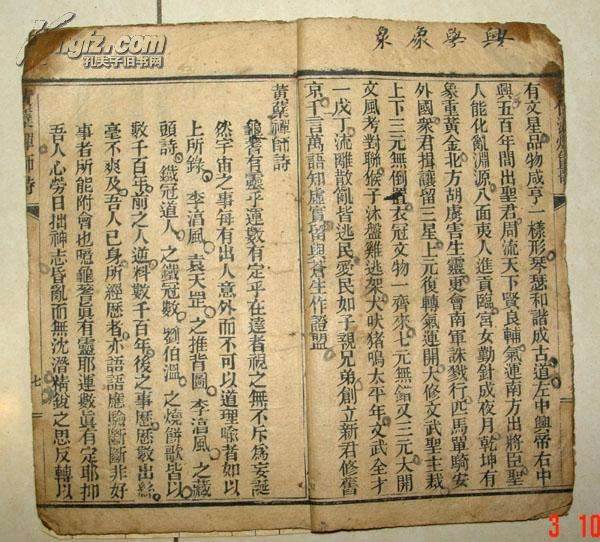 kongfz.com
孔夫子旧书网
興學象象
有文星品物咸亨一樣形琴瑟和諧成古道左中興帝右中
興五百年間出聖君周流天下賢良輔氣運南方出將臣聖
人能化亂淵源八面夷人進貢臨宮女勤針成夜月乾坤有
象重黃金北方胡虜害生靈更會南軍誅戮行匹馬單騎安
外國衆君揖讓留三星上元復轉氣運開大修文武聖主裁
上下三元無倒置衣冠文物一齊來七元無錯又三元大開
文風考對聯猴子沐盤雞逃架犬吠猪鳴太平年文武全才
一戊丁流離散亂皆逃民愛民如子親兄弟創立新君修舊
京千言萬語知虛實留與蒼生作證盟
黃蘗禪師詩
龜蓍有靈乎運數有定乎在達者視之無不斥爲妄誕
然宇宙之事每有出人意外而不可以道理喻者如以
上所錄李淳風袁天罡之推背圖李淳風之藏
頭詩鐵冠道人之鐵冠數劉伯溫之燒餅歌皆以
數千百年前之人逆料數千百年後之事歷歷數出絲
毫不爽及吾人已身所經歷者亦語語應驗斷斷非好
事者所能附會也噫龜蓍眞有靈耶運數眞有定耶抑
吾人心勞日拙神志昏亂而無沈潛精銳之思反轉以
禪師詩
七
3 10